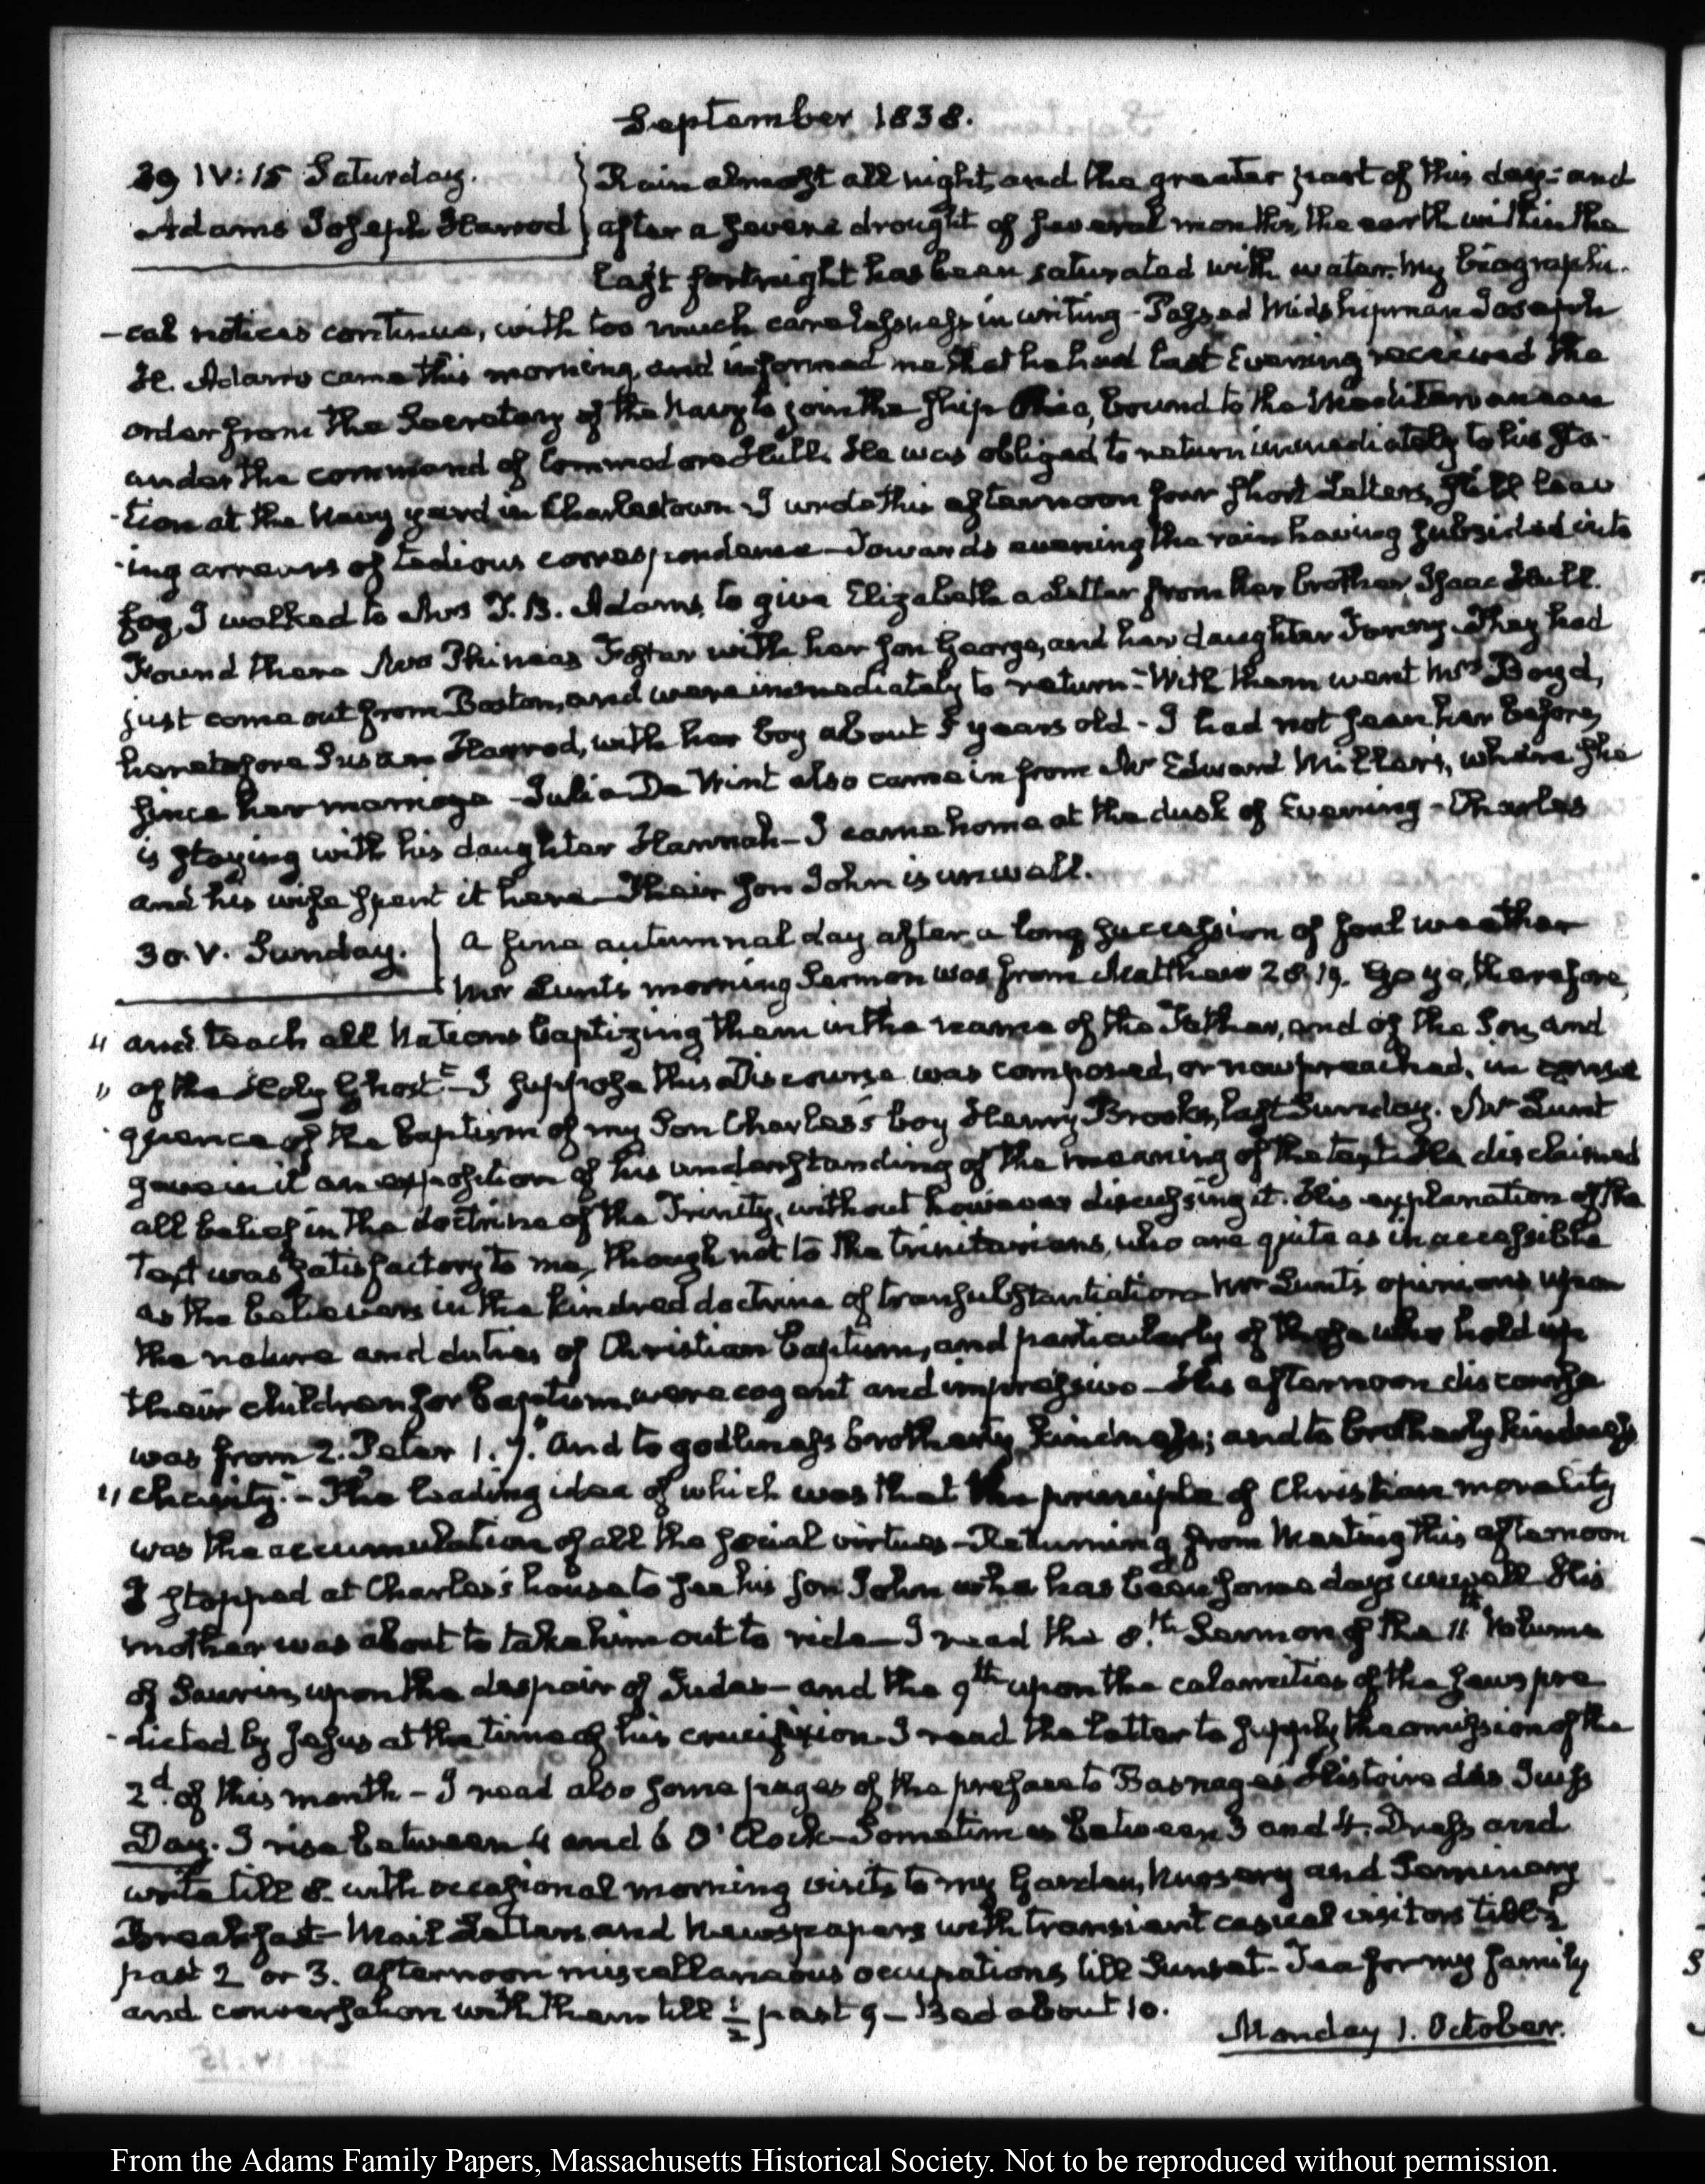 September 1838.
29 IV:15 Saturday.
Adams Joseph Harrod
Rain almost all night, and the greater part of this day: and
after a severe drought of several months, the earth within the
last fortnight has been saturated with water. My biographi-
-cal notices continue, with too much carelessness in writing - Passed Midshipman Joseph
H. Adams came this morning, and informed me that he had last Evening received the
order from the Secretary of the Navy to join the ship Ohio, bound to the Mediterranean
under the command of Commodore Hull. He was obliged to return immediately to his sta-
-tion at the Navy yard in Charlestown - I wrote this afternoon four short Letters, still leav
-ing arrears of tedious correspondence - Towards evening the rain having subsided into
fog, I walked to Mrs T. B. Adams, to give Elizabeth a Letter from her brother, Isaac Hull.
Found there Mrs Phineas Foster with her son George, and her daughter Fanny. They had
just come out from Boston, and were immediately to return - With them went Mrs Boyd,
heretofore Susan Harrod, with her boy about 5 years old - I had not seen her before,
since her marriage - Julia De Wint also came in from Mr Edward Miller's, where she
is staying with his daughter Hannah - I came home at the dusk of Evening - Charles
and his wife spent it here - Their son John is unwell.
30. V. Sunday.
A fine autumnal day after a long succession of foul weather
Mr Lunt's morning Sermon was from Matthew 28.19. Go ye, therefore,
" and teach all Nations baptizing them in the name of the Father, and of the Son, and
" of the Holy Ghost" - I suppose this Discourse was composed, or now preached, in conse
quence of the baptism of my Son Charles's boy Henry Brooks, last Sunday. Mr Lunt
gave in it an exposition of his understanding of the meaning of the text. He disclaimed
all belief in the doctrine of the Trinity, without however discussing it. His explanation of the
Text was satisfactory to me, though not to the trinitarians, who are quite as inaccessible
as the believers in the kindred doctrine of transubstantiation - Mr Lunt's opinions upon
the nature and duties of Christian baptism, and particularly of those who hold up
their children for baptism, were cogent and impressive - His afternoon discourse
was from 2. Peter 1.7. "And to godliness brotherly kindness; and to brotherly kindness
" charity." - The leading idea of which was that the principle of Christian morality
was the accumulation of all the social virtues - Returning from Meeting this afternoon
I stopped at Charles's house to see his son John who has been some days unwell. His
mother was about to take him out to ride - I read the 8th Sermon of the 11th Volume
of Saurin, upon the despair of Judas - and the 9th upon the calamities of the Jews pre
-dicted by Jesus at the time of his crucifixion - I read the latter to supply the omission of the
2d. of this month - I read also some pages of the preface to Basnage's Histoire des Juifs
Day. I rise between 4 and 6 O'Clock - Sometimes between 3 and 4. Dress and
write till 8. with occasional morning visits to my Garden, Nursery and Seminary
Breakfast - Mail Letters and Newspapers with transient casual visitors till ½
past 2 or 3. Afternoon miscellaneous occupations till Sunset - Tea for my family
and conversation with them till ½ past 9 - Bed about 10.
Monday 1. October.
From the Adams Family Papers, Massachusetts Historical Society. Not to be reproduced without permission.